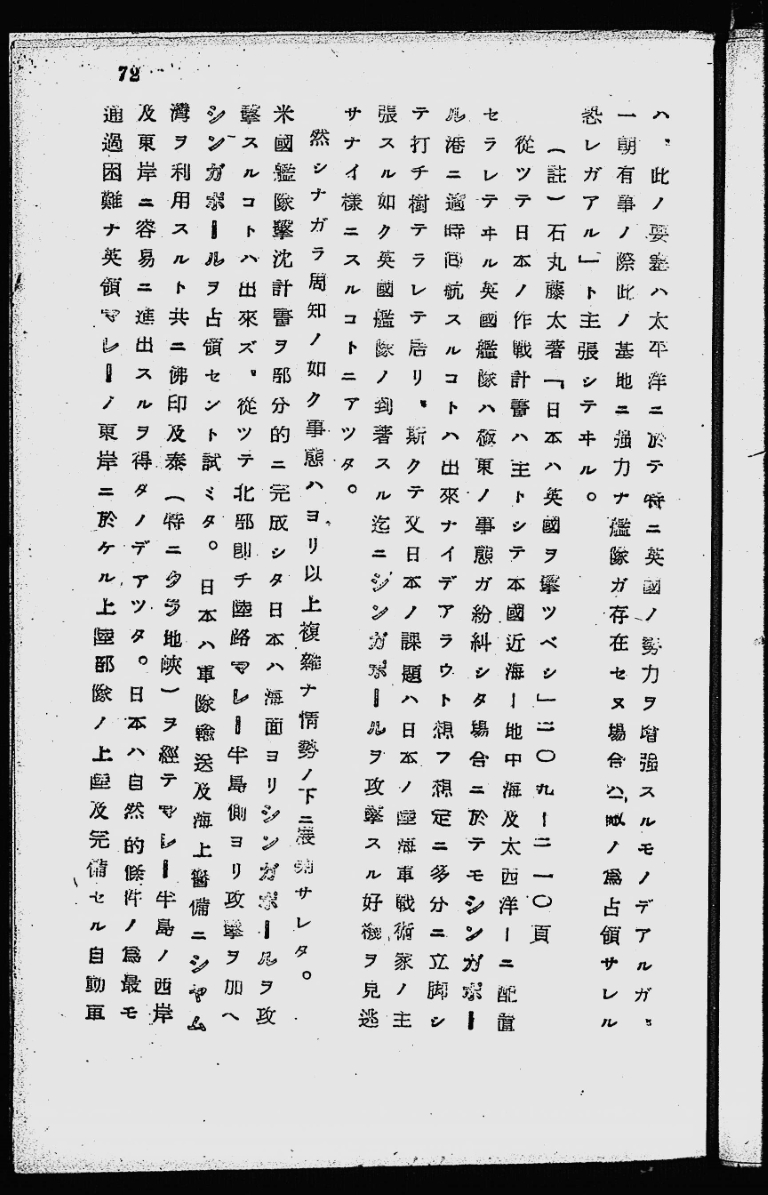 72
ハ、此ノ要塞ハ太平洋ニ於テ特ニ英國ノ勢力ヲ增强スルモノデアルガ、
一朝有事ノ際此ノ基地ニ强力ナ艦隊ガ存在セヌ場合ハ、敵ノ爲占領サレル
恐レガアル」ト主張シテヰル。
(註)石丸藤太著「日本ハ英國ヲ擊ツベシ」二〇九ー二一〇頁
從ツテ日本ノ作戰計畫ハ主トシテ本國近海ー地中海及大西洋ーニ配置
セラレテヰル英國艦隊ハ極東ノ事態ガ紛糾シタ場合ニ於テモシンガポー
ル港ニ適時囘航スルコトハ出來ナイデアラウト想フ想定ニ多分ニ立脚シ
テ打チ樹テラレテ居リ、斯クテ又日本ノ課題ハ日本ノ陸海軍戰術家ノ主
張スル如ク英國艦隊ノ到著スル迄ニシンガポールヲ攻擊スル好機ヲ見逃
サナイ樣ニスルコトニアツタ。
然シナガラ周知ノ如ク事態ハヨリ以上複雜ナ情勢ノ下ニ展開サレタ。
米國艦隊擊沈計畫ヲ部分的ニ完成シタ日本ハ海面ヨリシンガポールヲ攻
擊スルコトハ出來ズ、從ツテ北部卽チ陸路マレー半島側ヨリ攻擊ヲ加へ
シンガポールヲ占領セント試ミタ。日本ハ軍隊輸送及海上警備ニシヤム
灣ヲ利用スルト共ニ佛印及泰(特ニクラ地峽)ヲ經テマレー半島ノ西岸
及東岸ニ容易ニ進出スルヲ得タノデアツタ。日本ハ自然的條件ノ爲最モ
通過困難ナ英領マレーノ東岸ニ於ケル上陸部隊ノ上陸及完備セル自動車